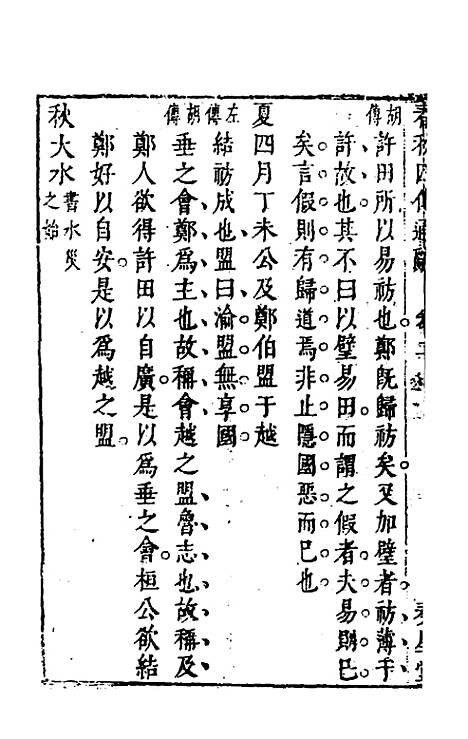 胡傳 許田所以易祊也鄭旣歸祊矣又加璧者祊薄于
許故也其不曰以璧易田而謂之假者夫易則已
矣言假則有歸道焉非止隱國惡而已也
夏四月丁未公及鄭伯盟于越
左傳 結祊成也盟曰渝盟無享國
胡傳 垂之會鄭爲主也故稱會越之盟魯志也故稱及
鄭人欲得許田以自廣是以爲垂之會桓公欲結
鄭好以自安是以爲越之盟
秋大水 書水災之始